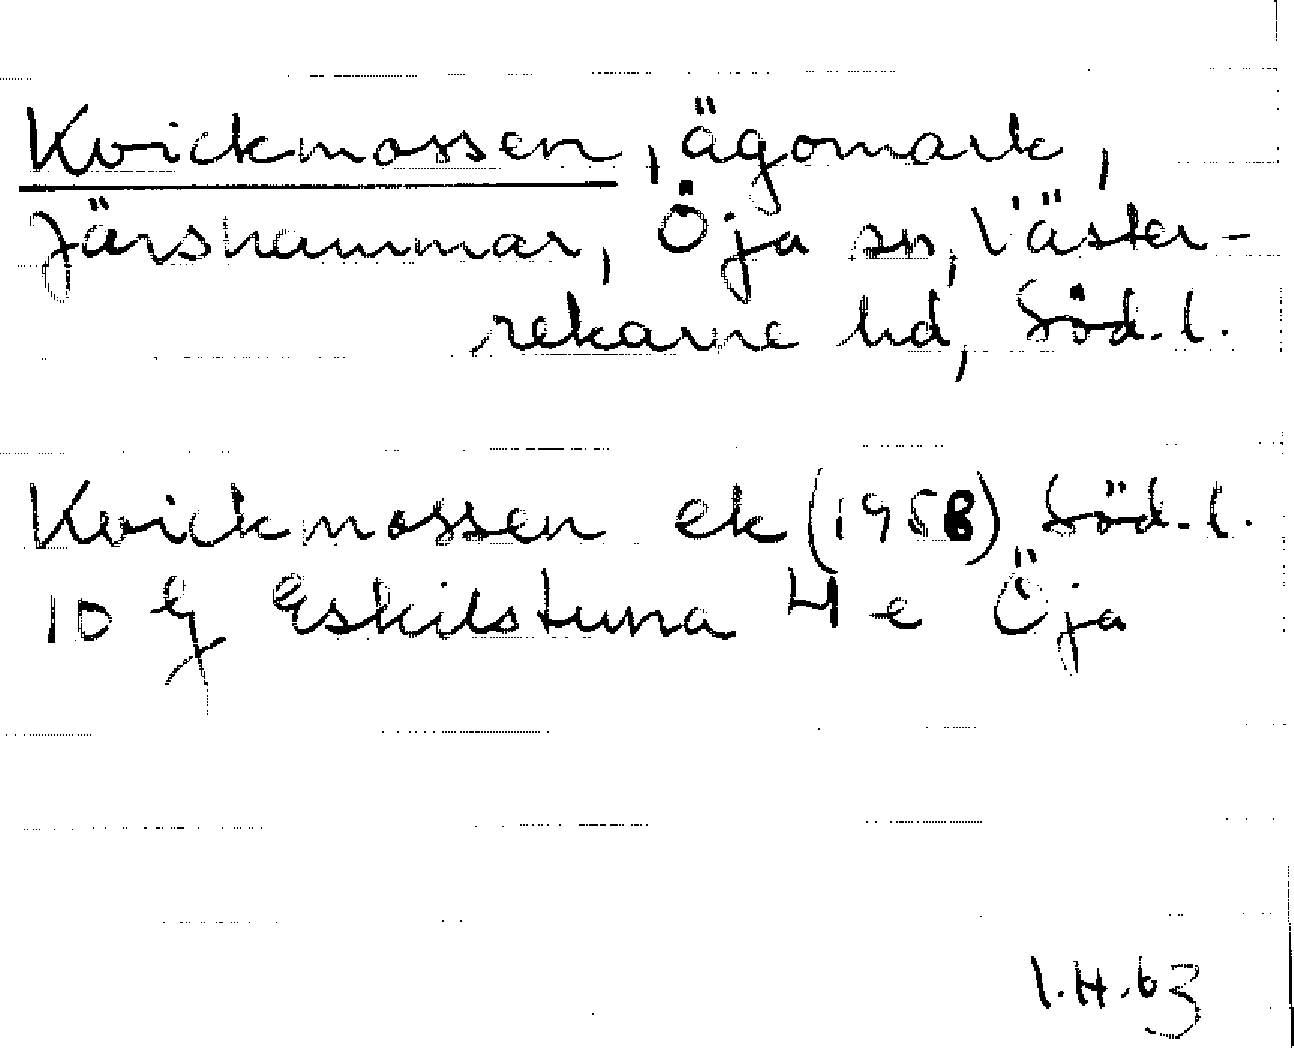 Kvickmossen, ägomark,
Järshammar, Öja sn, Väster-
rekarne hd, Söd. l.
Kvickmossen ek (1958) Söd. l.
10 G Eskilstuna 4 e Öja
I.H.63